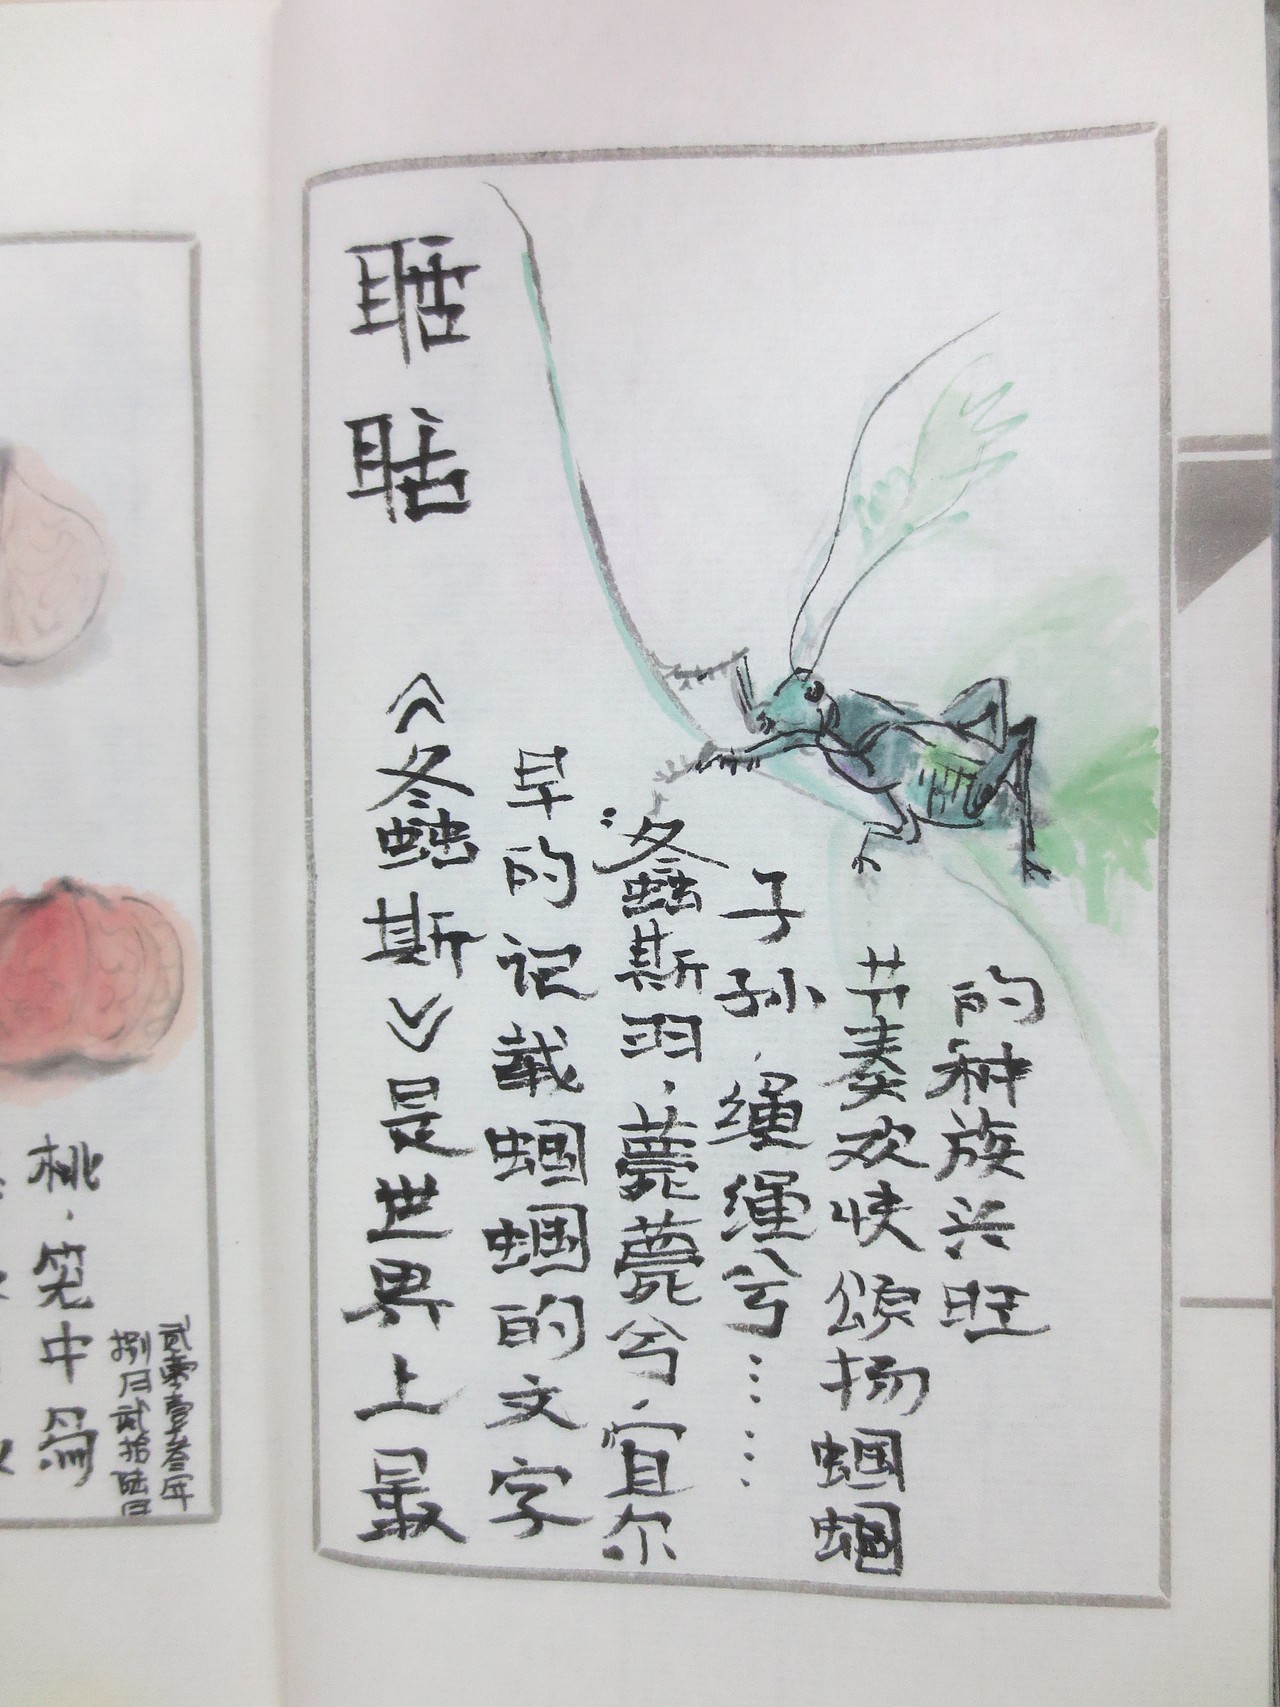 桃
贰零壹叁年
捌月贰拾陆日
聒聒
《螽斯》是世界上最
早的记载蝈蝈的文字
：螽斯羽，薨薨兮，宜尔
子孙，绳绳兮……
节奏欢快颂扬蝈蝈
的种族兴旺